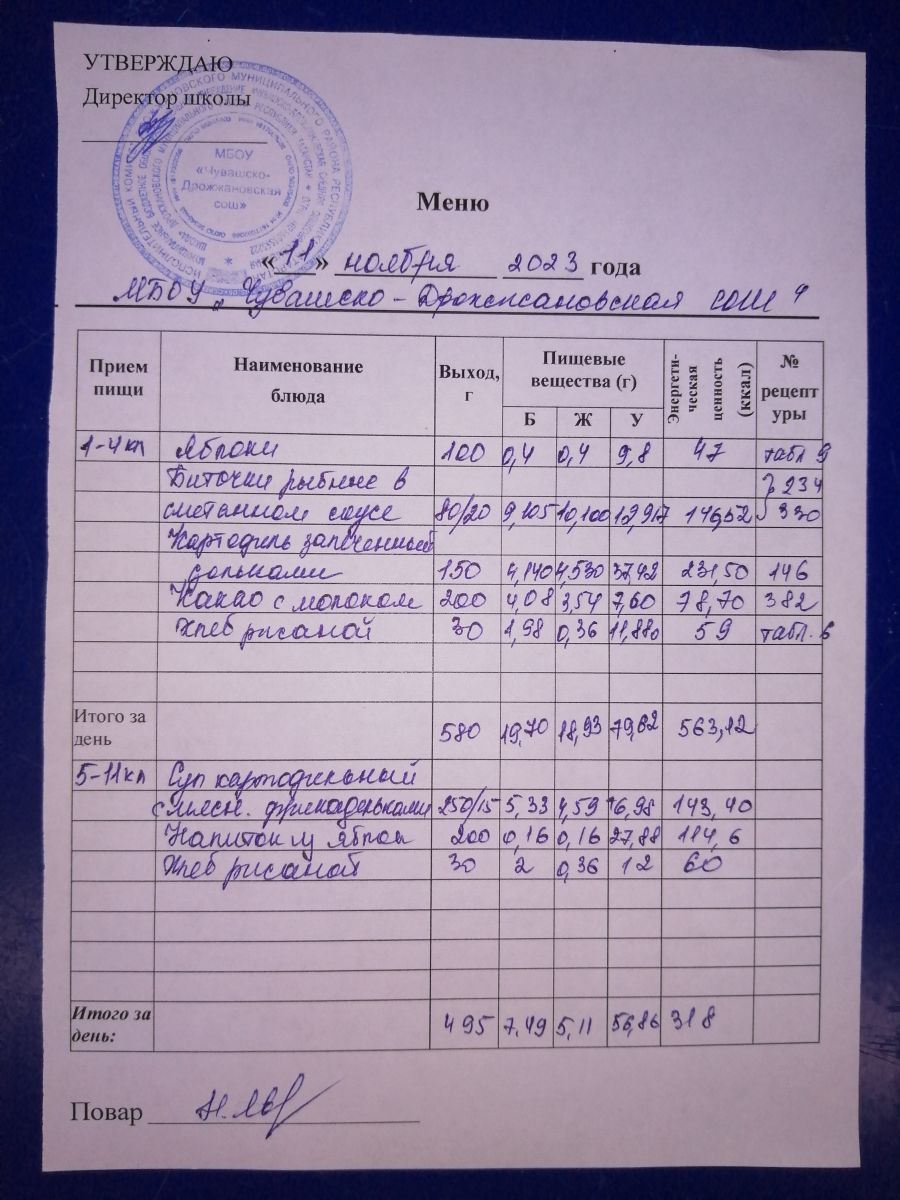 УТВЕРЖДАЮ
Директор школы
МБОУ
«Чувашско-
Дрожжановская
сош»
Меню
«11» ноября 2023 года
МБОУ „Чувашско-Дрожжановская СОШ"
Прием пищи Наименование блюда Выход, г Пищевые вещества (г) Энергети-ческая ценность (ккал) № рецептуры
Б Ж У
1-4кл Яблоки 100 0,4 0,4 9,8 47 табл 9
Биточки рыбные в 234
сметанном соусе 80/20 9,105 10,100 12,917 146,52 330
Картофель запеченный
дольками 150 4,140 4,530 37,42 231,50 146
Какао с молоком 200 4,08 3,54 7,60 78,70 382
Хлеб ржаной 30 1,98 0,36 11,880 59 табл. 6
Итого за день 580 19,70 18,93 79,62 563,12
5-11кл Суп картофельный
с мясн. фрикадельками 250/15 5,33 4,59 16,98 143,40
Напиток из яблок 200 0,16 0,16 27,88 114,6
Хлеб ржаной 30 2 0,36 12 60
Итого за день: 495 7,49 5,11 56,86 318
Повар